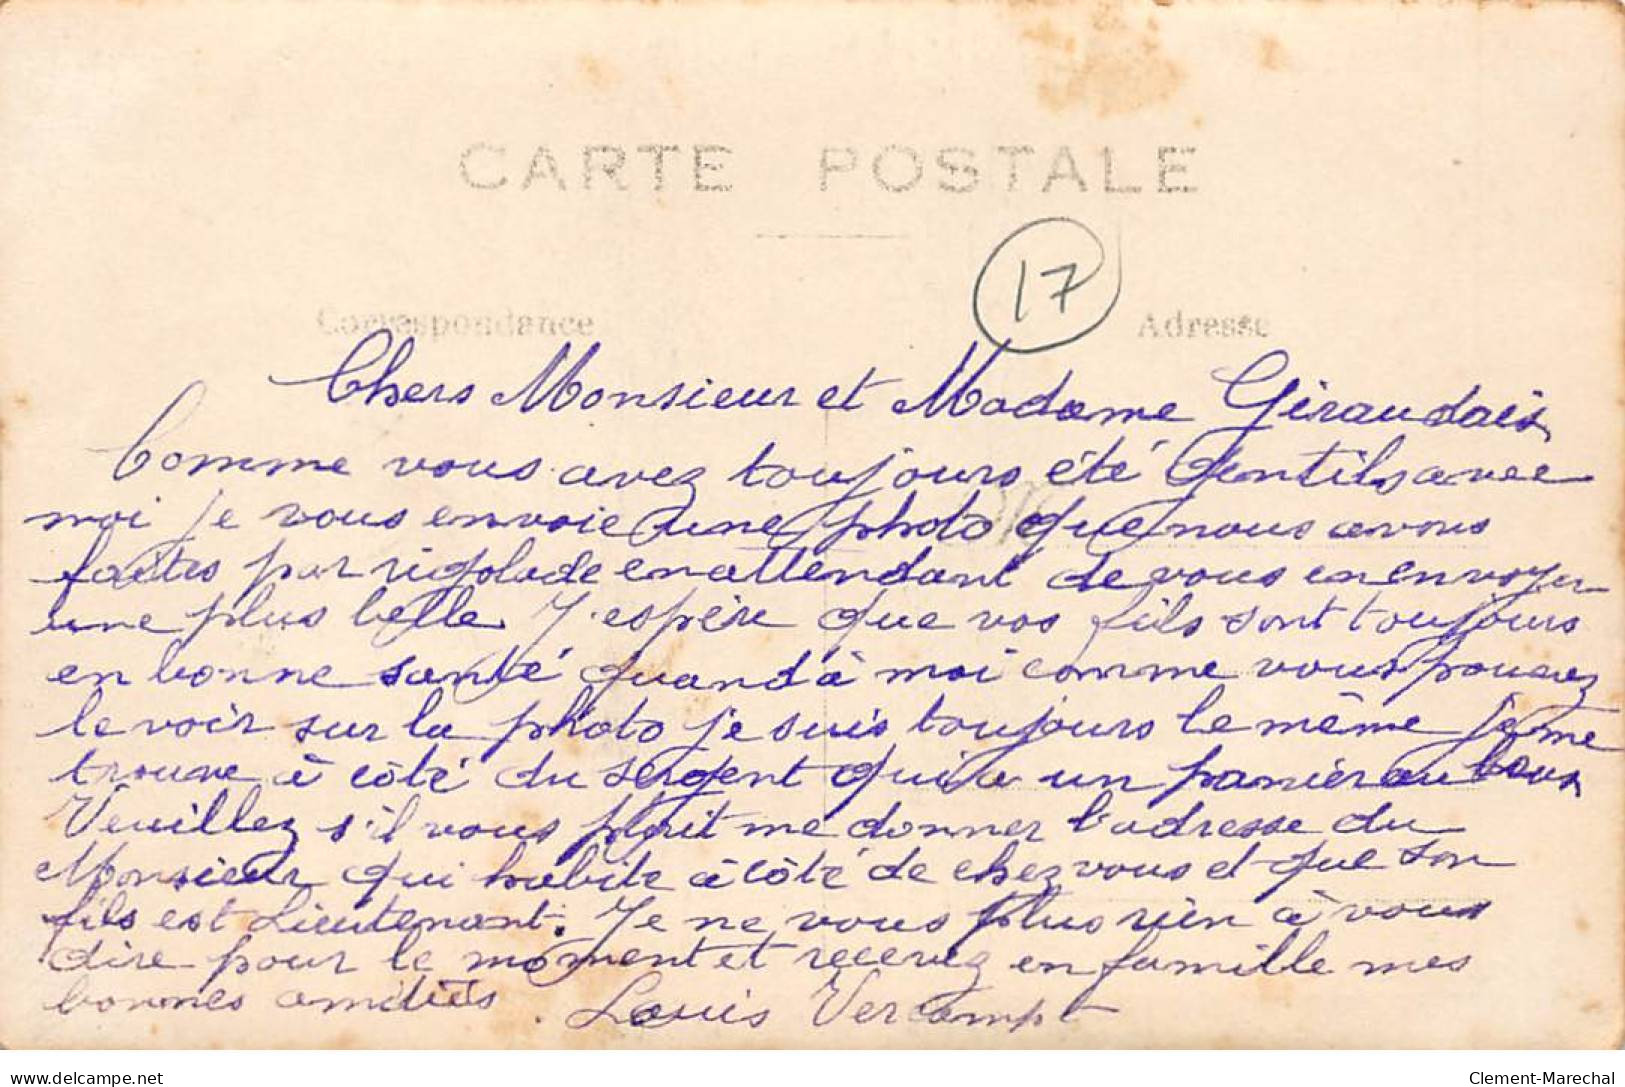 CARTE POSTALE
17
Correspondance
Adresse
Chers Monsieur et Madame Giraudais
Comme vous avez toujours été gentils avec
moi je vous envoie une photo que nous avons
faites par rigolade en attendant de vous en envoyer
une plus belle. J'espère que vos fils sont toujours
en bonne santé quand à moi comme vous pouvez
le voir sur la photo je suis toujours le même je me
trouve à côté du sergent qui a un panier au bras
Veuillez s'il vous plait me donner l'adresse du
Monsieur qui habite à côté de chez vous et que son
fils est Lieutenant. Je ne vous plus rien à vous
dire pour le moment et recevez en famille mes
bonnes amitiés. Louis Vercampt
delcampe.net
Clement-Marechal